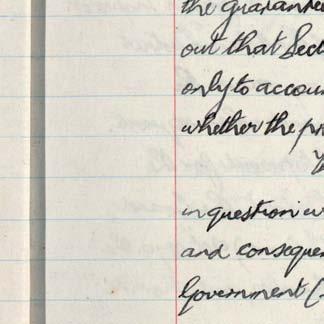 the guarantee
out that Sect
only to accoun
whether the pr
in question w
and consequen
Government (